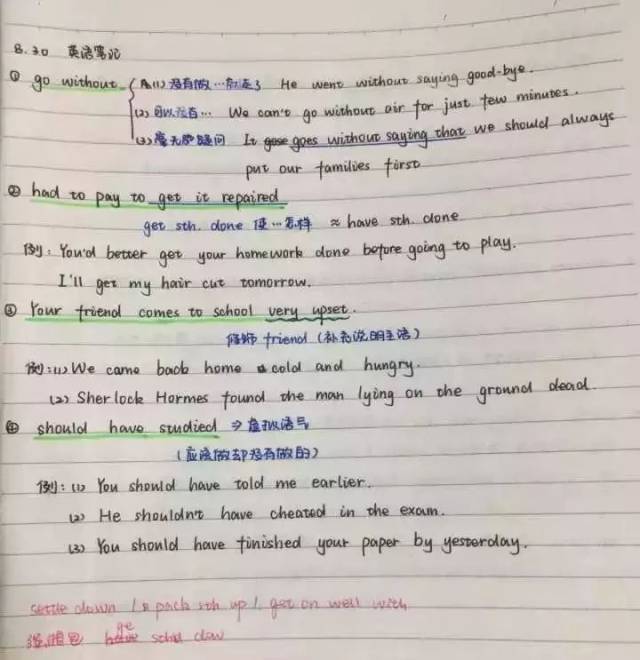 8.30 英语笔记
① go without (1) 没有做…就走了 He went without saying good-bye.
(2) 可以没有… We can't go without air for just few minutes.
(3) 毫无疑问 It goes without saying that we should always
put our families first
② had to pay to get it repaired
get sth. done 使…怎样 ≈ have sth. done
例: You'd better get your homework done before going to play.
I'll get my hair cut tomorrow.
③ Your friend comes to school very upset.
修饰 friend (补充说明主语)
例:(1) We came back home cold and hungry.
(2) Sherlock Hormes found the man lying on the ground dead.
④ should have studied ⇒ 虚拟语气
(应该做却没有做的)
例: (1) You should have told me earlier.
(2) He shouldn't have cheated in the exam.
(3) You should have finished your paper by yesterday.
settle down / pack sth up /. get on well with